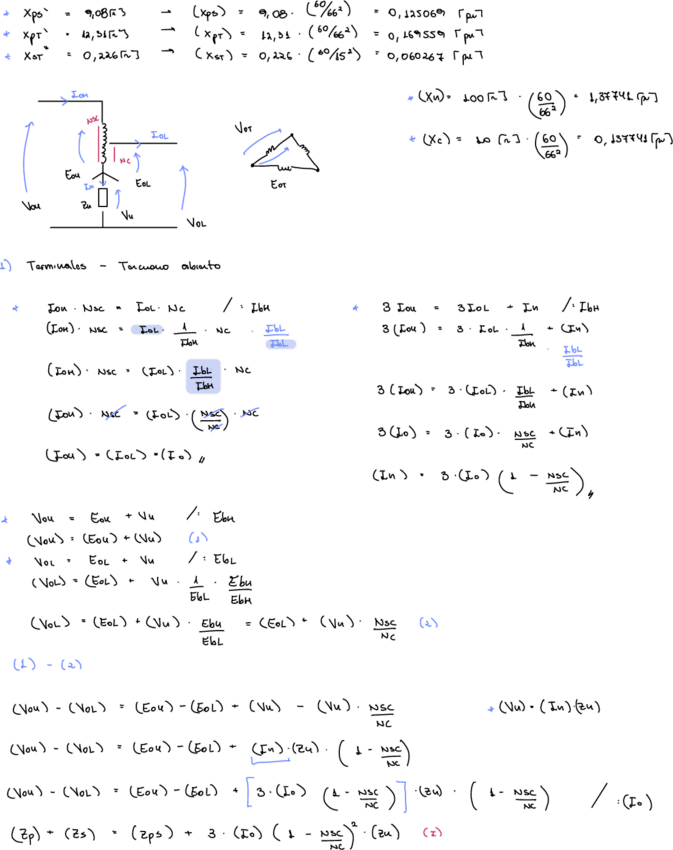 * Xps` = 9,08[Ω] → (Xps) = 9,08 · (60/66²) = 0,125069 [pu]
* XpT` = 12,31[Ω] → (XpT) = 12,31 · (60/66²) = 0,169559 [pu]
* XsT" = 0,226[Ω] → (XsT) = 0,226 · (60/15²) = 0,060267 [pu]
* (Xn) = 100[Ω] · (60/66²) = 1,37741[pu]
* (Xc) = 10 [Ω] · (60/66²) = 0,137741[pu]
IOH
NSC
IOL
NC
EOH
EOL
In
Zn
VOH
Vn
VOL
VOT
EOT
1) Terminales - Terciario abierto
* IOH · NSC = IOL · NC /: IbH
(IOH) · NSC = IOL · 1/IbH · NC · IbL/IbL
(IOH) · NSC = (IOL) · IbL/IbH · NC
(IOH) · NSC = (IOL) · (NSC/NC) · NC
(IOH) = (IOL) = (Io) //
* 3 IOH = 3 IOL + In /: IbH
3 (IOH) = 3 · IOL · 1/IbH + (In)
· IbL/IbL
3 (IOH) = 3 · (IOL) · IbL/IbH + (In)
3 (Io) = 3 · (Io) · NSC/NC + (In)
(In) = 3 · (Io) (1 - NSC/NC) //
* VOH = EOH + Vn /: EbH
(VOH) = (EOH) + (Vn) (1)
* VOL = EOL + Vn /: EbL
(VOL) = (EOL) + Vn · 1/EbL · EbH/EbH
(VOL) = (EOL) + (Vn) · EbH/EbL = (EOL) + (Vn) · NSC/NC (2)
(1) - (2)
(VOH) - (VOL) = (EOH) - (EOL) + (Vn) - (Vn) · NSC/NC
* (Vn) = (In)·(Zn)
(VOH) - (VOL) = (EOH) - (EOL) + (In)·(Zn) · (1 - NSC/NC)
(VOH) - (VOL) = (EOH) - (EOL) + [3 · (Io) (1 - NSC/NC)] · (Zn) · (1 - NSC/NC) / :(Io)
(Zp) + (Zs) = (Zps) + 3 · (Io) (1 - NSC/NC)² · (Zn) (I)